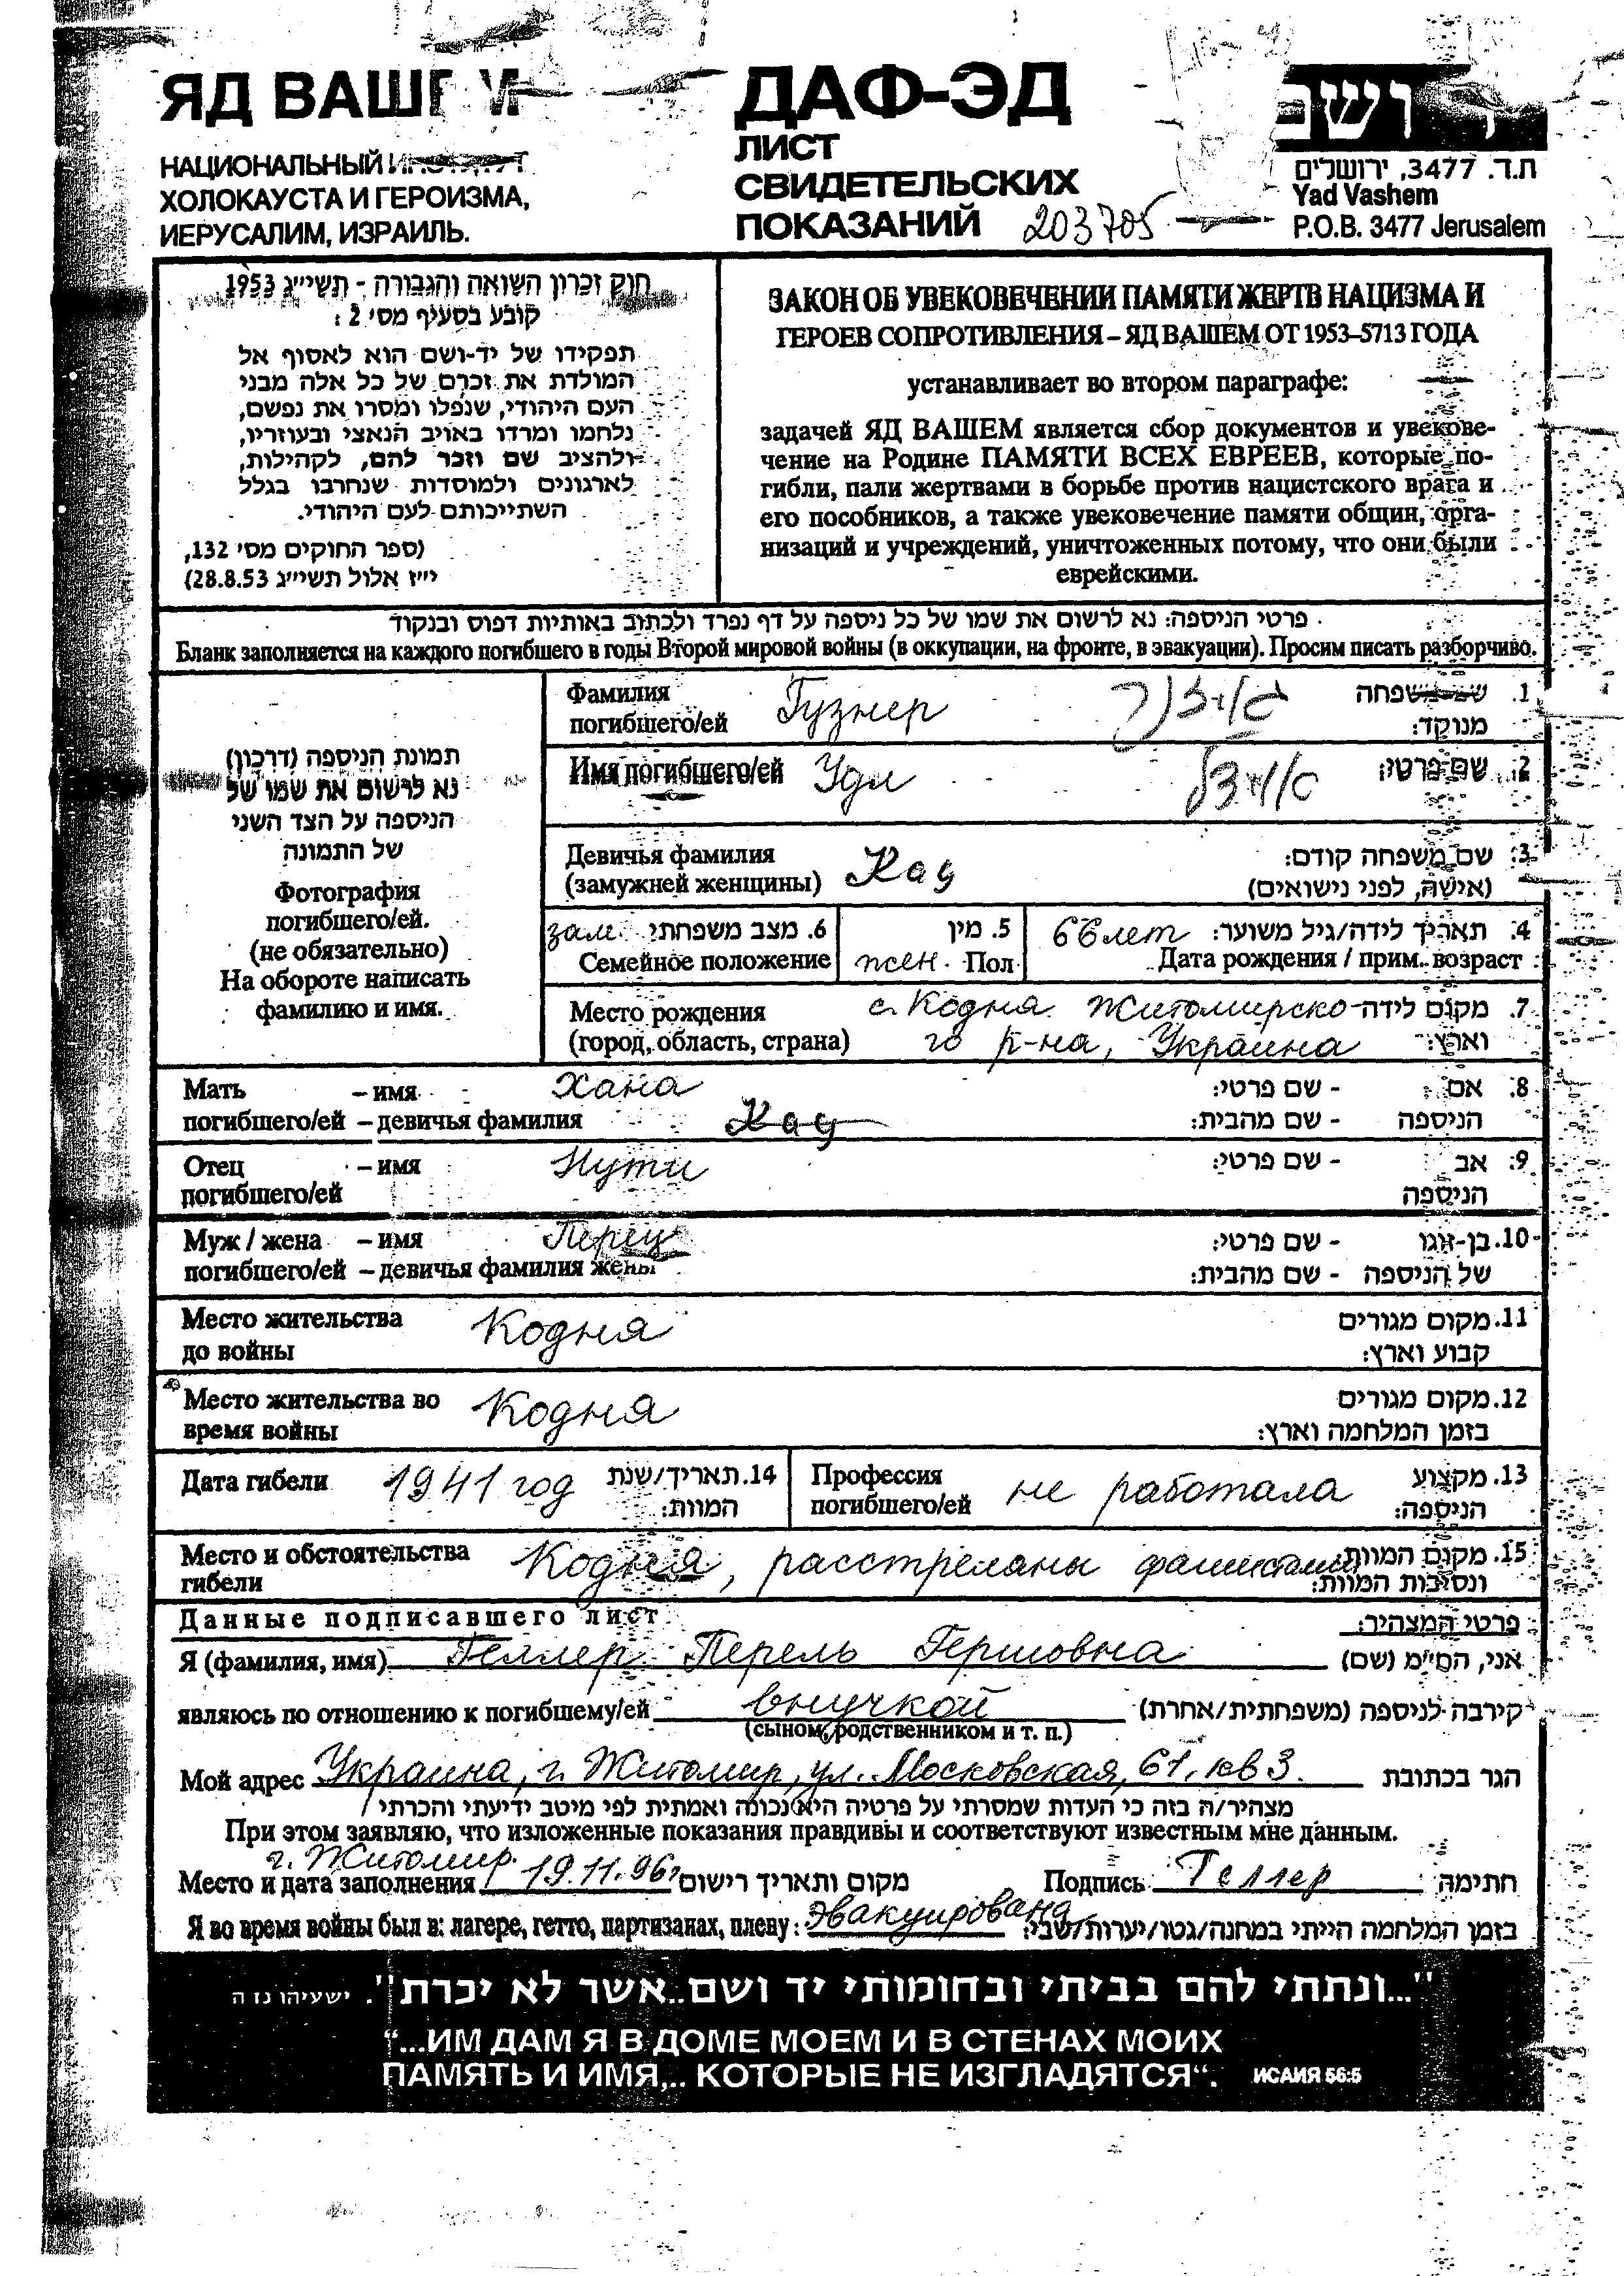 ЯД ВАШЕМ
НАЦИОНАЛЬНЫЙ ИНСТИТУТ
ХОЛОКАУСТА И ГЕРОИЗМА,
ИЕРУСАЛИМ, ИЗРАИЛЬ.
ДАФ-ЭД
ЛИСТ
СВИДЕТЕЛЬСКИХ
ПОКАЗАНИЙ 203705
ת.ד. 3477, ירושלים
Yad Vashem
P.O.B. 3477 Jerusalem
חוק זכרון השואה והגבורה - תשי״ג 1953
קובע בסעיף מס׳ 2:
תפקידו של יד-ושם הוא לאסוף אל
המולדת את זכרם של כל אלה מבני
העם היהודי, שנפלו ומסרו את נפשם,
נלחמו ומרדו באויב הנאצי ובעוזריו,
ולהציב שם וזכר להם, לקהילות,
לארגונים ולמוסדות שנחרבו בגלל
השתייכותם לעם היהודי.
(ספר החוקים מס׳ 132,
י״ז אלול תשי״ג 28.8.53)
ЗАКОН ОБ УВЕКОВЕЧЕНИИ ПАМЯТИ ЖЕРТВ НАЦИЗМА И
ГЕРОЕВ СОПРОТИВЛЕНИЯ – ЯД ВАШЕМ ОТ 1953–5713 ГОДА
устанавливает во втором параграфе:
задачей ЯД ВАШЕМ является сбор документов и увекове-
чение на Родине ПАМЯТИ ВСЕХ ЕВРЕЕВ, которые по-
гибли, пали жертвами в борьбе против нацистского врага и
его пособников, а также увековечение памяти общин, орга-
низаций и учреждений, уничтоженных потому, что они были
еврейскими.
פרטי הניספה: נא לרשום את שמו של כל ניספה על דף נפרד ולכתוב באותיות דפוס ובנקוד
Бланк заполняется на каждого погибшего в годы Второй мировой войны (в оккупации, на фронте, в эвакуации). Просим писать разборчиво.
תמונת הניספה (דרכון)
נא לרשום את שמו של
הניספה על הצד השני
של התמונה
Фотография
погибшего/ей.
(не обязательно)
На обороте написать
фамилию и имя.
Фамилия
погибшего/ей Гузнер גוזנר 1. שם משפחה
מנוקד:
Имя погибшего/ей Удл אודל 2. שם פרטי:
Девичья фамилия
(замужней женщины) Кац 3. שם משפחה קודם:
(אישה, לפני נישואים)
зам. 6. מצב משפחתי
Семейное положение
5. מין
жен. Пол
66 лет 4. תאריך לידה/גיל משוער:
Дата рождения / прим. возраст
Место рождения с. Кодня Житомирско- 7. מקום לידה
(город, область, страна) го р-на, Украина וארץ:
Мать – имя Хана 8. אם - שם פרטי:
погибшего/ей – девичья фамилия Кац הניספה - שם מהבית:
Отец – имя Нути 9. אב - שם פרטי:
погибшего/ей הניספה
Муж / жена – имя Перец 10. בן-זוגו - שם פרטי:
погибшего/ей – девичья фамилия жены של הניספה - שם מהבית:
Место жительства Кодня 11. מקום מגורים
до войны קבוע וארץ:
Место жительства во Кодня 12. מקום מגורים
время войны בזמן המלחמה וארץ:
Дата гибели 1941 год 14. תאריך/שנת
המוות:
Профессия
погибшего/ей не работала 13. מקצוע
הניספה:
Место и обстоятельства Кодня, расстреляны фашистами 15. מקום המוות
гибели ונסיבות המוות:
Данные подписавшего лист פרטי המצהיר:
Я (фамилия, имя) Геллер Перель Гершовна אני, הח״מ (שם)
являюсь по отношению к погибшему/ей внучкой קירבה לניספה (משפחתית/אחרת)
(сыном, родственником и т. п.)
Мой адрес Украина, г. Житомир, ул. Московская, 61, кв 3. הגר בכתובת
מצהיר/ה בזה כי העדות שמסרתי על פרטיה היא נכונה ואמתית לפי מיטב ידיעתי והכרתי
При этом заявляю, что изложенные показания правдивы и соответствуют известным мне данным.
г. Житомир
Место и дата заполнения 19.11.96г מקום ותאריך רישום Подпись Геллер חתימה
Я во время войны был в: лагере, гетто, партизанах, плену: Эвакуирована בזמן המלחמה הייתי במחנה/גטו/יערות/שבי:
"...ונתתי להם בביתי ובחומותי יד ושם..אשר לא יכרת". ישעיהו נז ה
“...ИМ ДАМ Я В ДОМЕ МОЕМ И В СТЕНАХ МОИХ
ПАМЯТЬ И ИМЯ,.. КОТОРЫЕ НЕ ИЗГЛАДЯТСЯ“. ИСАИЯ 56:5